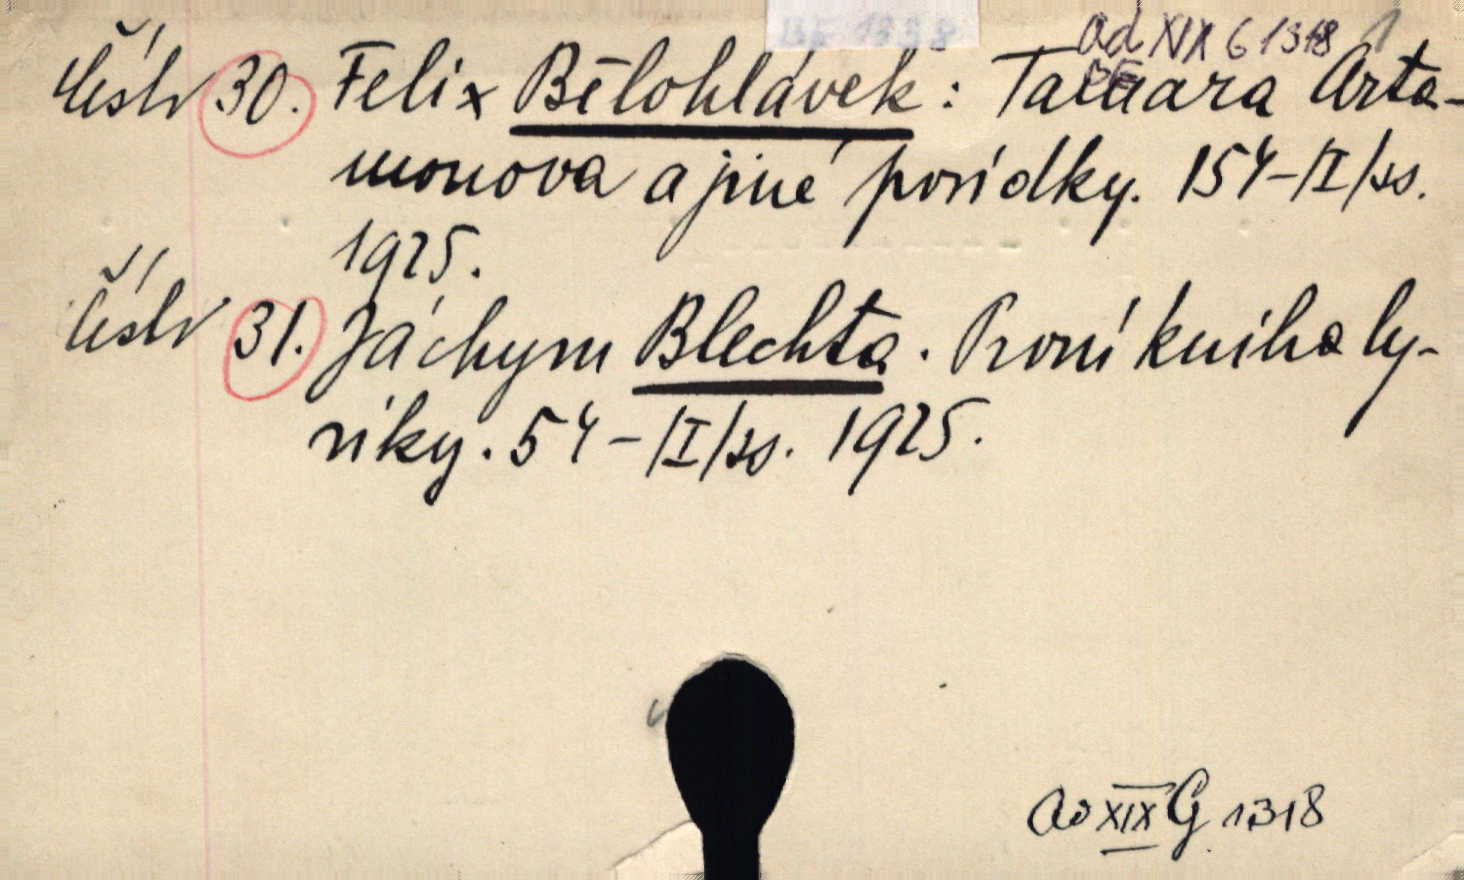 ad XIX G 1318 1
30. Felix Bělohlávek: Tamara Arta-
monova a jiné povídky. 154-/I/ss.
1925.
31. Jáchym Blechta. První kniha ly-
riky. 54-/I/ss. 1925.
ad XIX G 1318